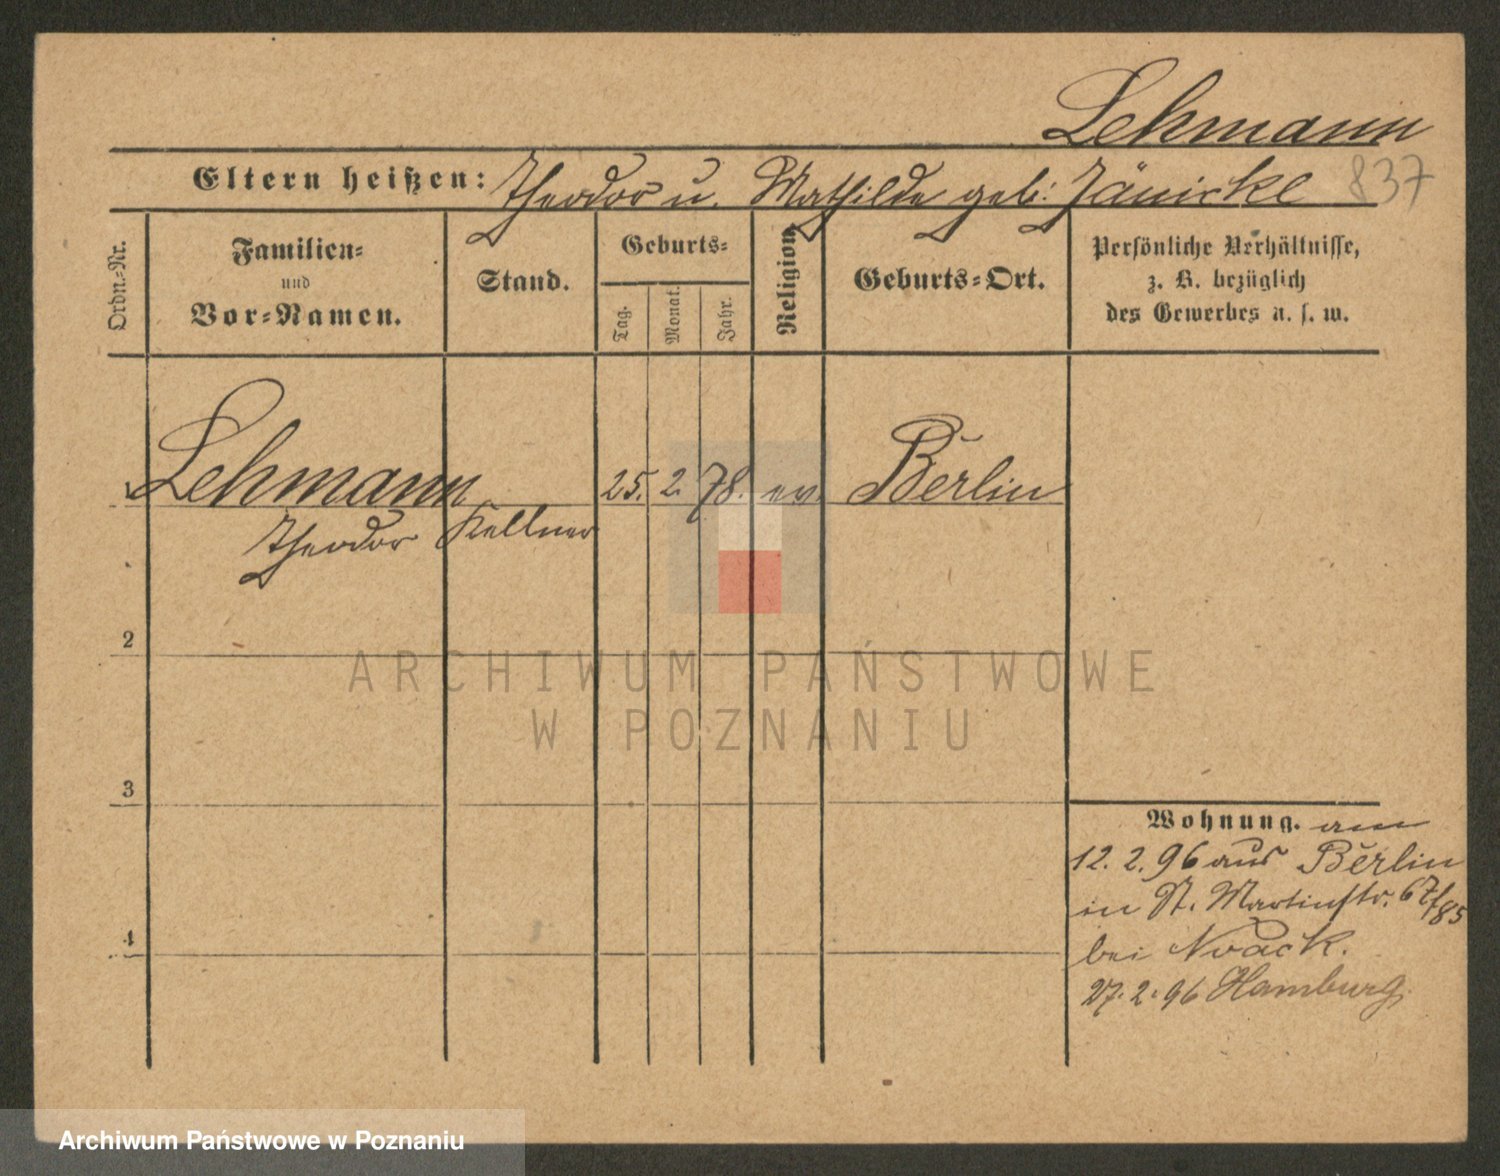 Lehmann
Eltern heißen: Theodor u. Mathilde geb. Jänicke 837
Ordn.-Nr.
Familien-
und
Vor-Namen.
Stand.
Geburts-
Tag.
Monat.
Jahr.
Religion.
Geburts-Ort.
Persönliche Verhältnisse,
z. B. bezüglich
des Gewerbes u. s. w.
Lehmann 25. 2. 78. ev. Berlin
Theodor Kellner
2
ARCHIWUM PAŃSTWOWE
W POZNANIU
3
Wohnung. am
12. 2. 96 aus Berlin
in St. Martinstr. 67/85
bei Noack.
4
27. 2. 96 Hamburg.
Archiwum Państwowe w Poznaniu